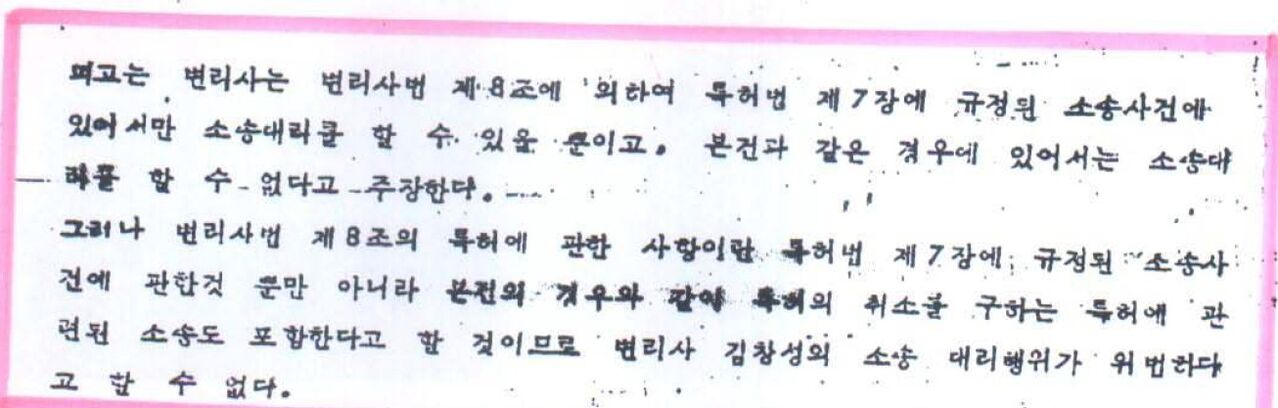 피고는 변리사는 변리사법 제8조에 의하여 특허법 제7장에 규정된 소송사건에
있어서만 소송대리를 할 수 있을 뿐이고. 본건과 같은 경우에 있어서는 소송대
리를 할 수 없다고 주장한다.
그러나 변리사법 제8조의 특허에 관한 사항이란 특허법 제7장에 규정된 소송사
건에 관한것 뿐만 아니라 본건의 경우와 같이 특허의 취소를 구하는 특허에 관
련된 소송도 포함한다고 할 것이므로 변리사 김창성의 소송 대리행위가 위법하다
고 할 수 없다.